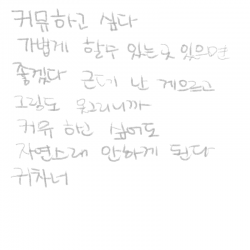 커뮤하고 싶다
가볍게 할수 있는곳 있으면
좋겠다 근데 난 게으르고
그림도 못그리니까
커뮤 하고 싶어도
자연스레 안하게 된다
귀차너